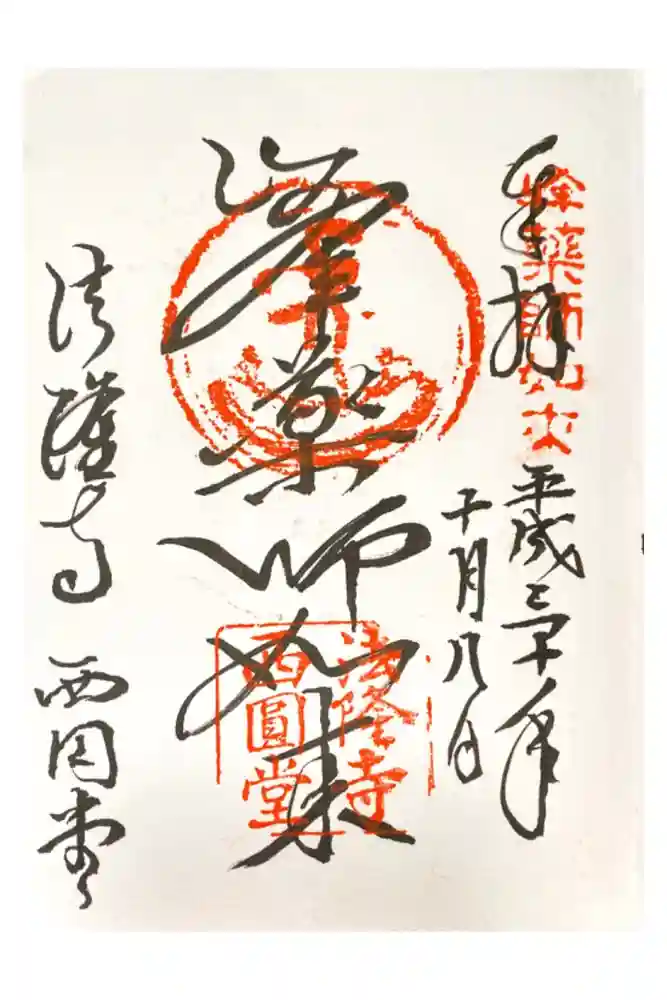 奉拝
峰薬師如来
平成三十年
十月八日
峯薬師如来
法隆寺
西圓堂
法隆寺 西円堂